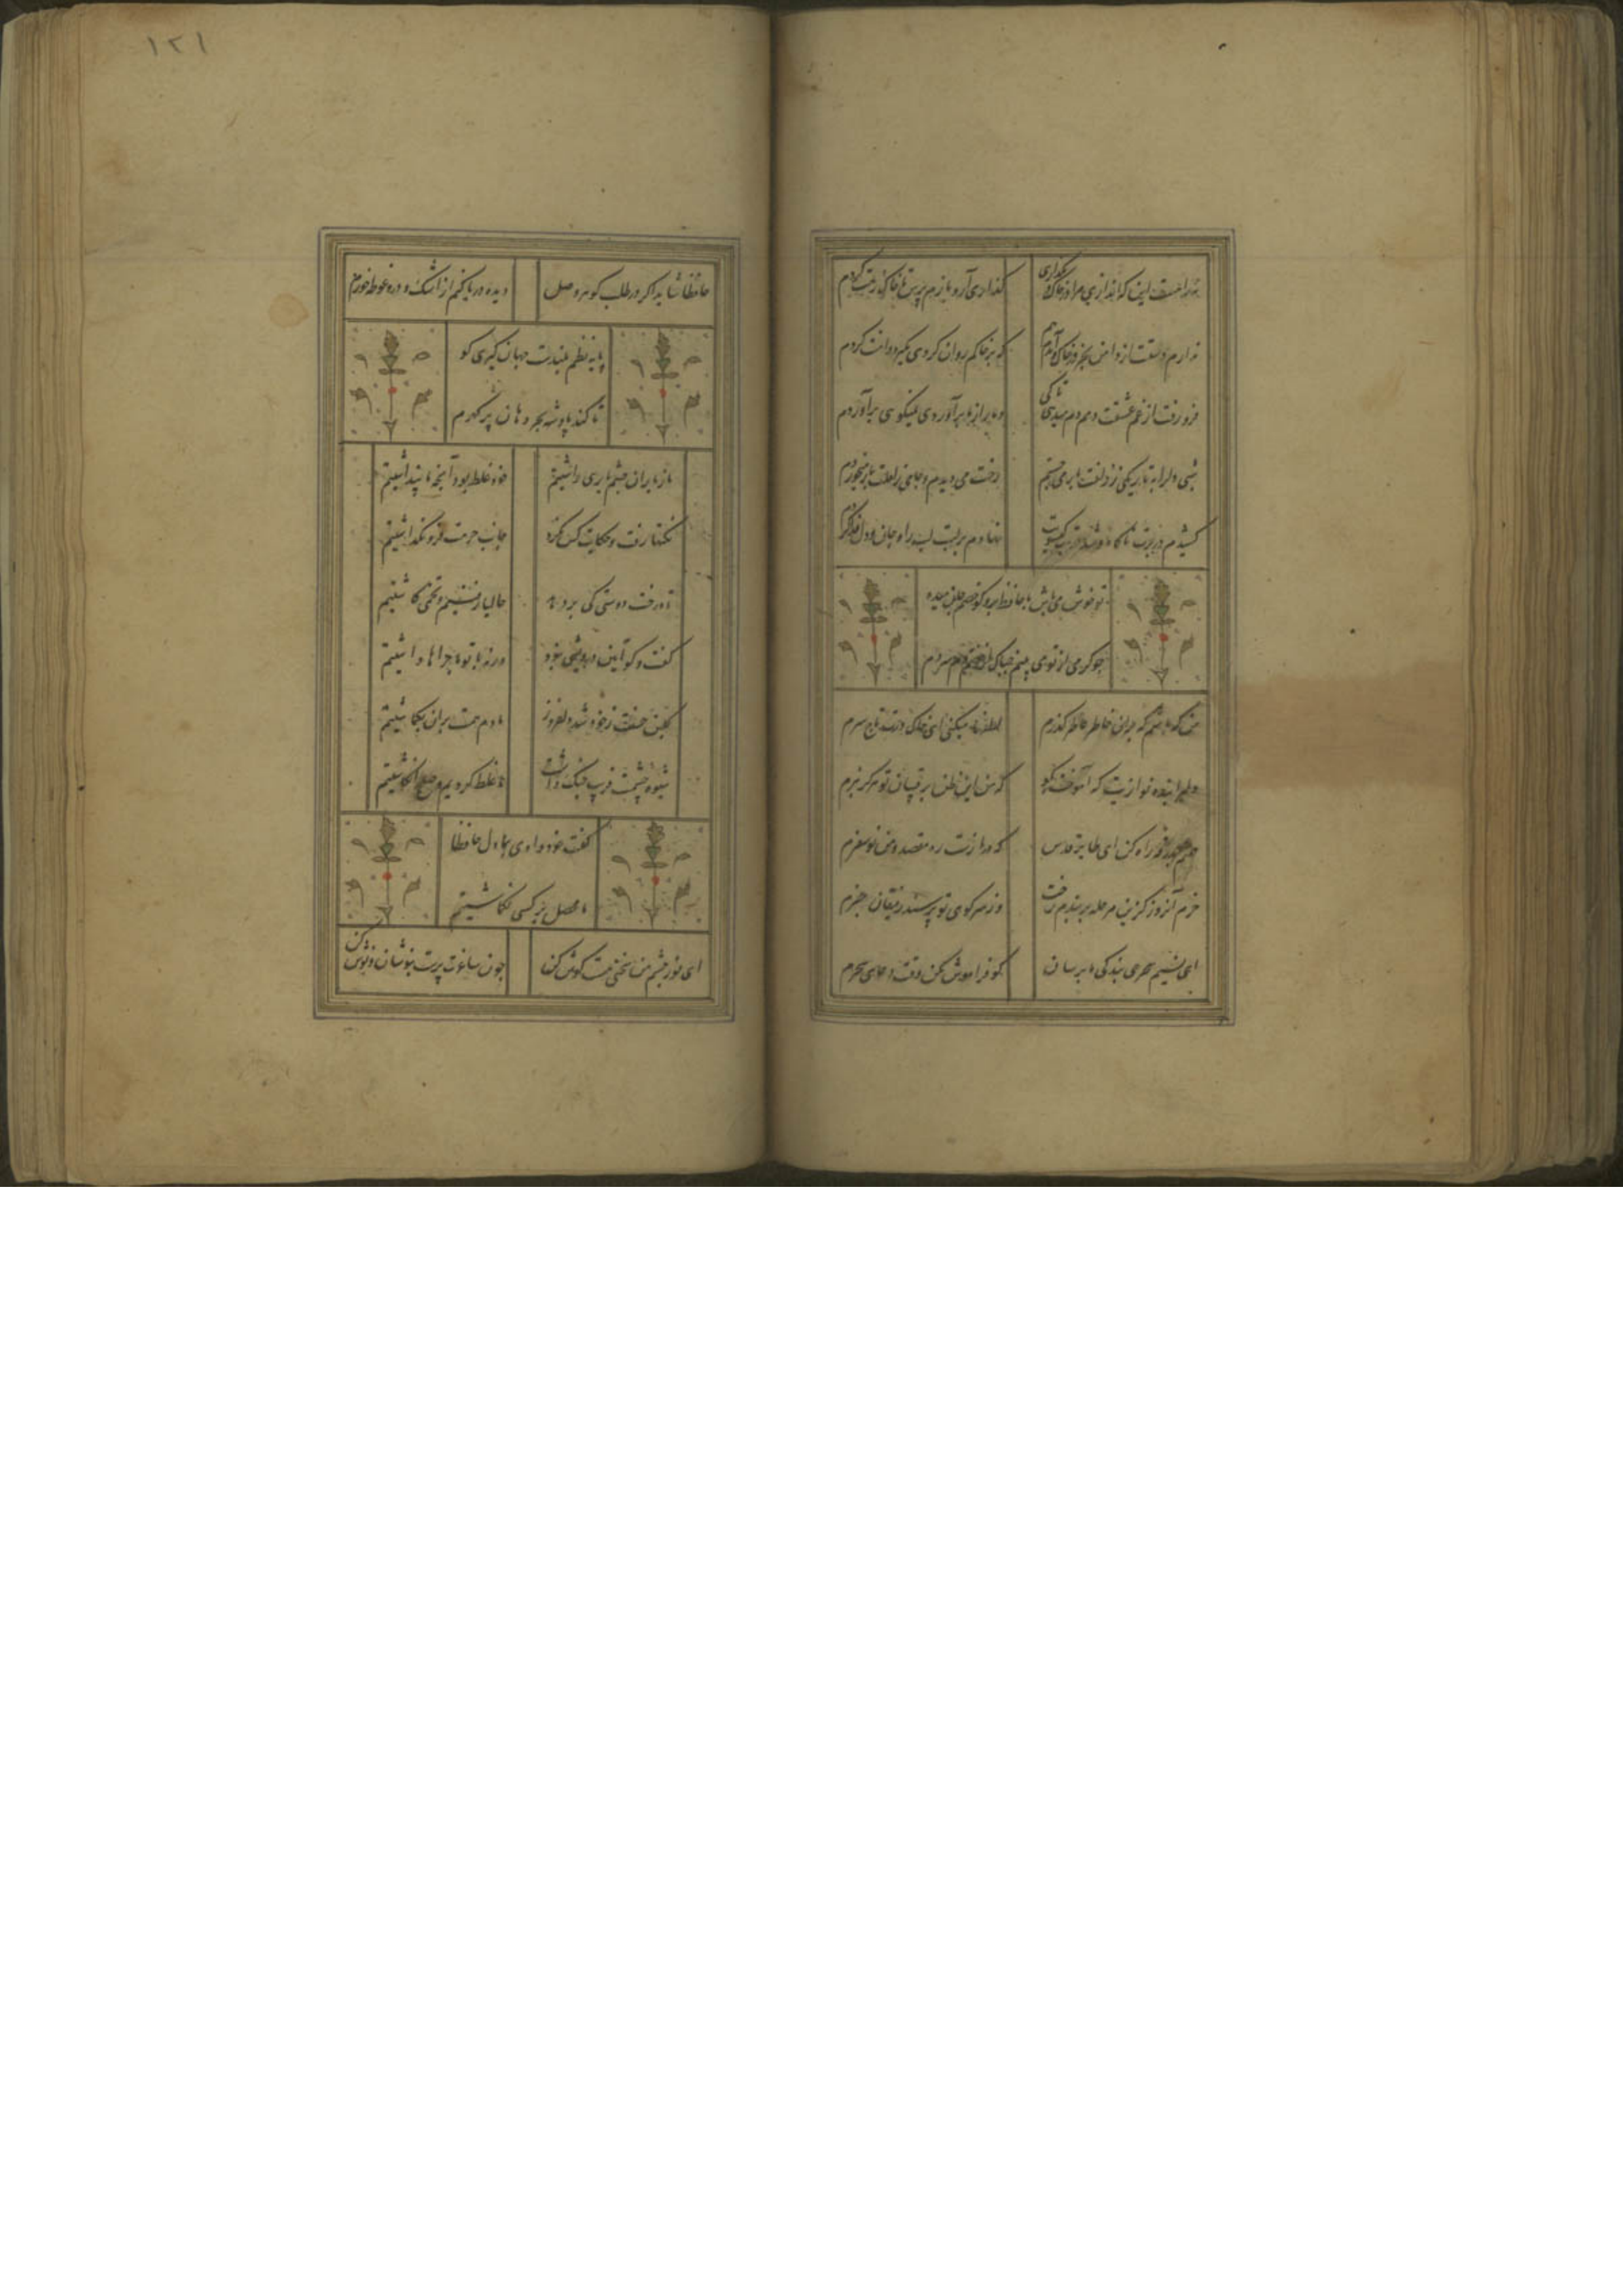 ۱۲۱
نه راهست این که اندازی مرا در خاک و بگذاری
گذاری آر و بازم پرس تا خاک رهت گردم
ندارم دستت از دامن بجز در خاک و آن دم هم
که بر خاکم روان گردی بگیرد دامنت گردم
فرو رفت از غم عشقت دمم دم میدهی تا کی
دمار از ما برآوردی نمیگویی برآوردم
شبی دل را به تاریکی ز زلفت باز می جستم
رخت می دیدم و جامی ز لعلت باز میخوردم
کشیدم در برت ناگاه و شد در تاب گیسویت
نهادم بر لبت لب را و جان و دل فدا کردم
تو خوش می باش با حافظ برو گو خصم جان میده
چو گرمی از تو می بینم چه باک از خصم دم سردم
من که باشم که بران خاطر عاطر گذرم
لطفها میکنی ای خاک درت تاج سرم
دلبرا بنده نوازیت که آموخت بگو
که من این ظن برقیبان تو هرگز نبرم
همتم بدرقه راه کن ای طایر قدس
که درازست ره مقصد و من نو سفرم
خرم آنروز کزین مرحله بربندم رخت
وز سر کوی تو پرسند رفیقان خبرم
ای نسیم سحری بندگی ما برسان
گو فراموش مکن وقت دعای سحرم
حافظا شاید اگر در طلب گوهر وصل
دیده دریا کنم از اشک و درو غوطه خورم
پایه نظم بلندست جهان گیری گو
تا کند پادشه بحر دهان پر گهرم
ما ز یاران چشم یاری داشتیم
خود غلط بود آنچه ما پنداشتیم
نکتها رفت و شکایت کس نکرد
جانب حرمت فرو نگذاشتیم
تا درخت دوستی کی بر دهد
حالیا رفتیم و تخمی کاشتیم
گفت و گو آیین درویشی نبود
ورنه با تو ماجراها داشتیم
گلبن حسنت نه خود شد دلفروز
ما دم همت بران بگماشتیم
شیوه چشمت فریب جنگ داشت
ما غلط کردیم و صلح انگاشتیم
گفت خود دادی بما دل حافظا
ما محصل بر کسی نگماشتیم
ای نور چشم من سخنی هست گوش کن
چون ساغرت پرست بنوشان و نوش کن